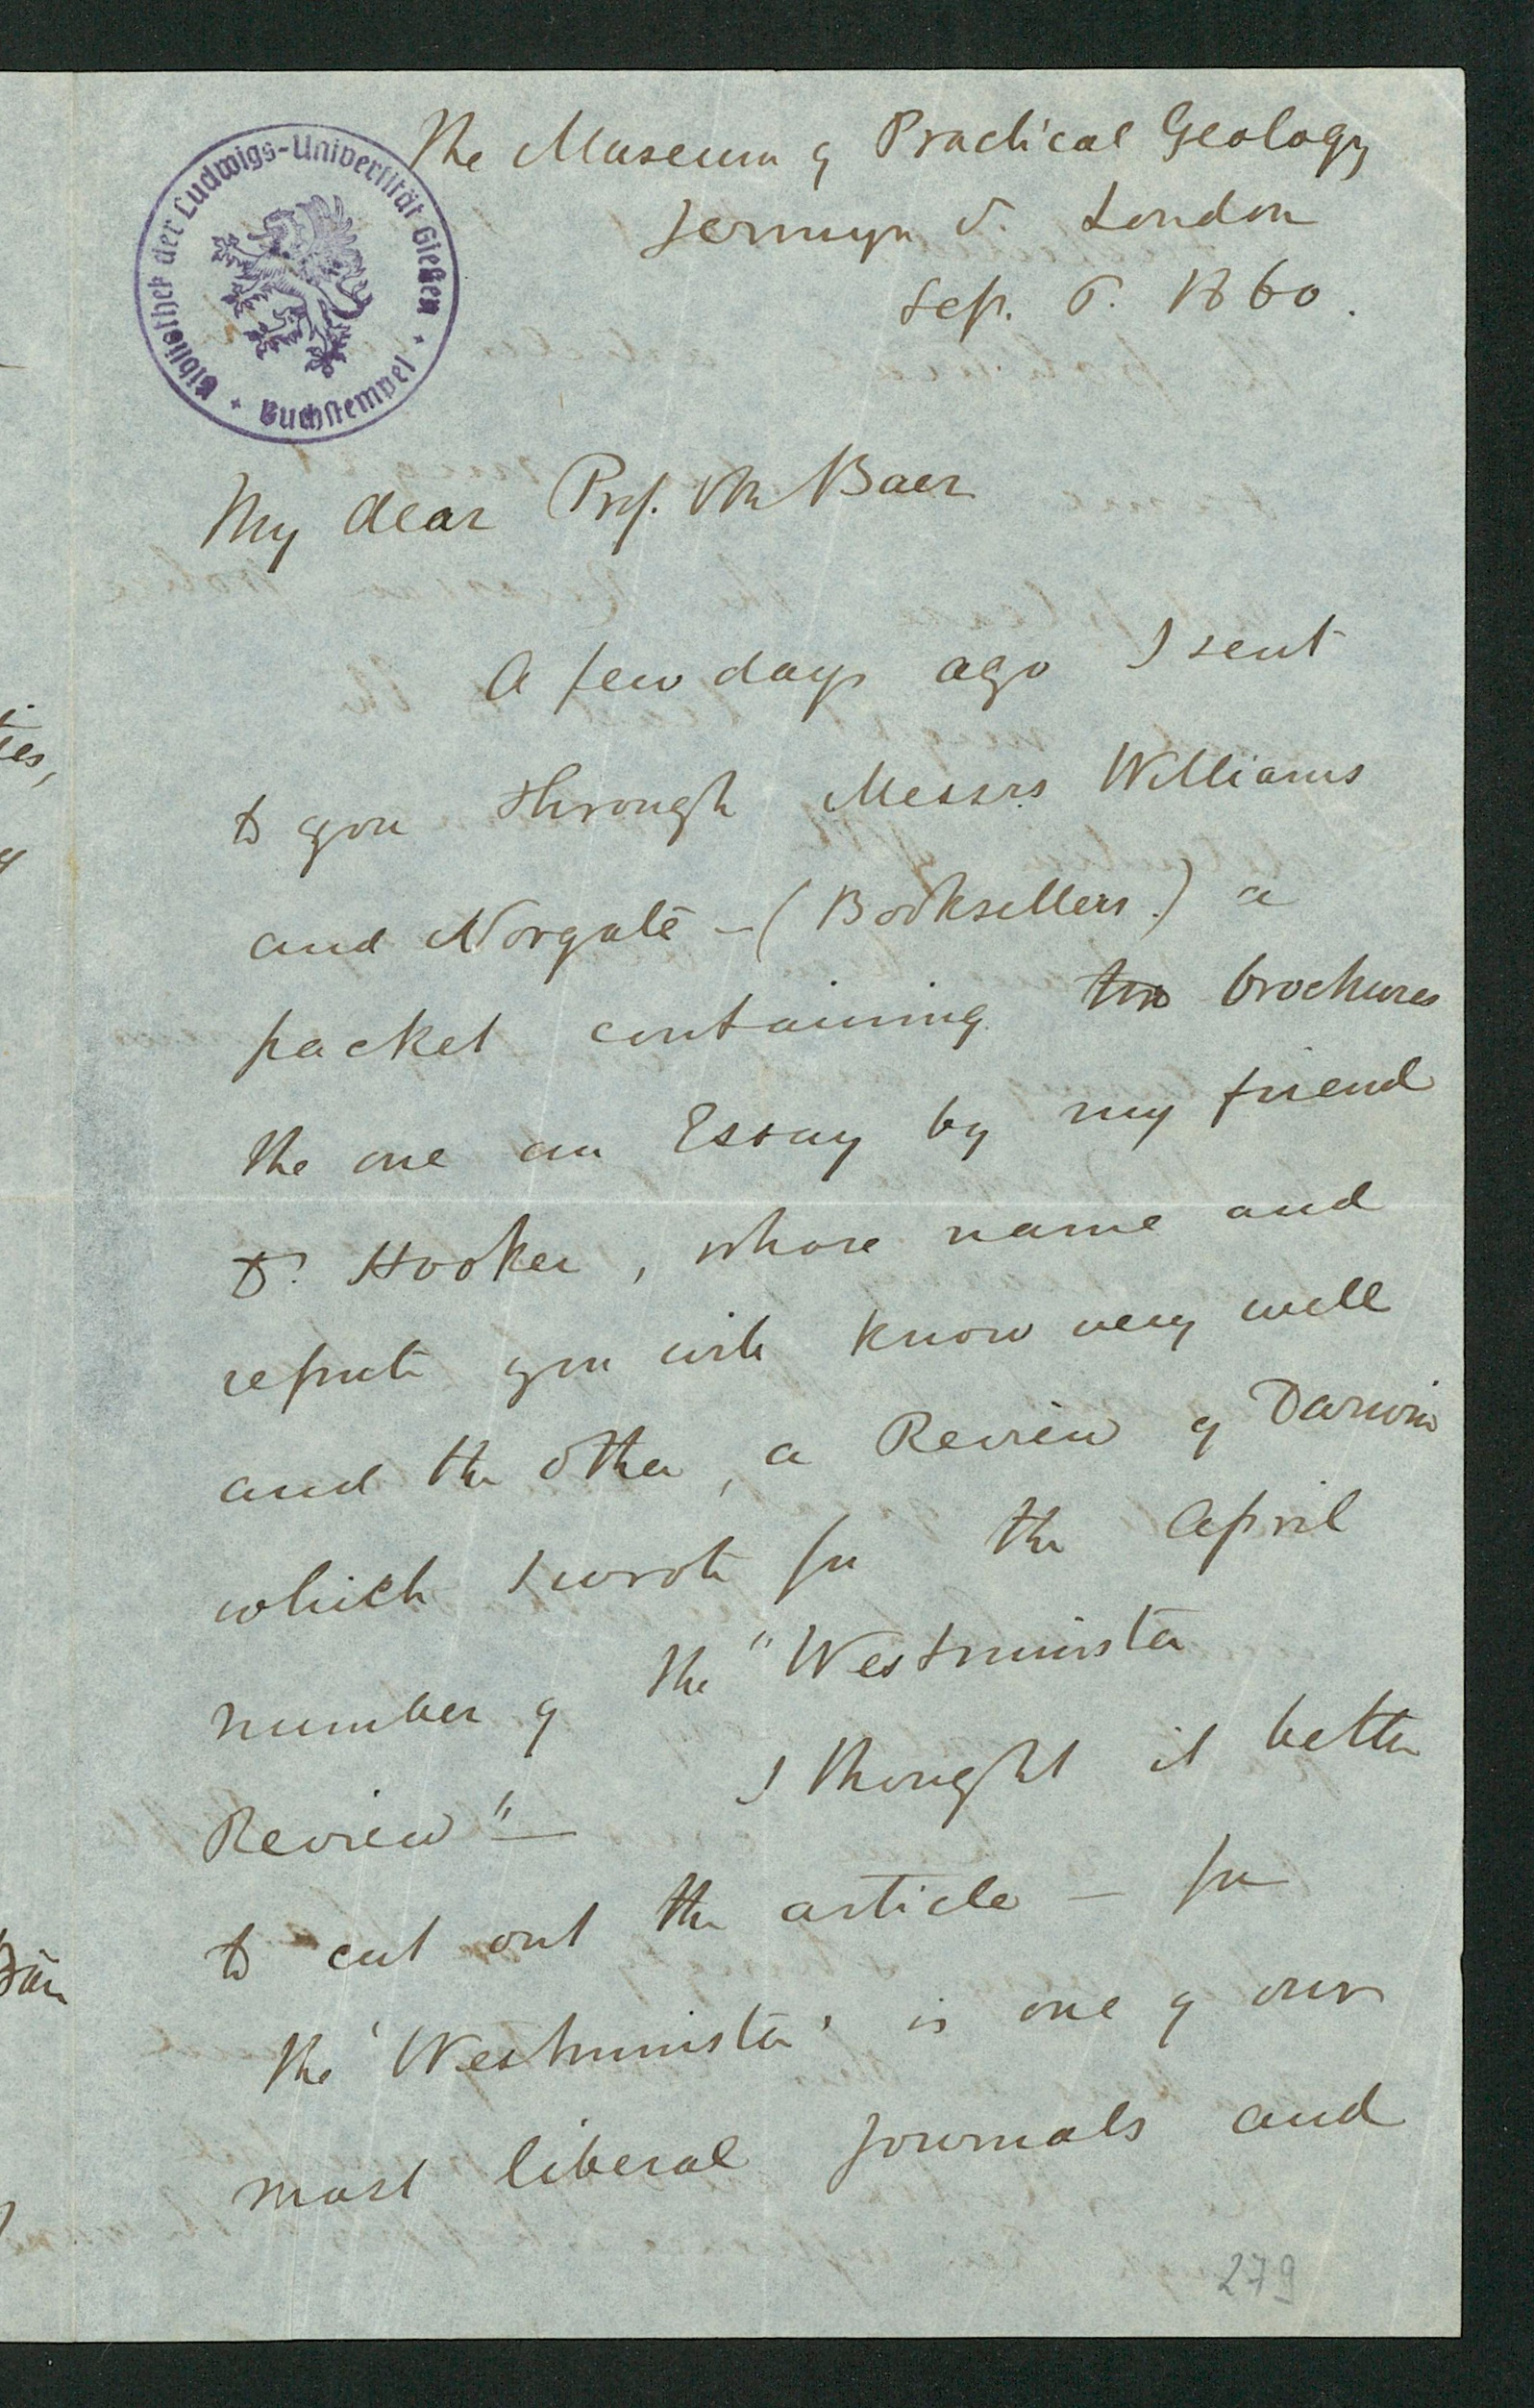 Bibliothek der Ludwigs-Universität Gießen
Buchstempel
The Museum of Practical Geology
Jermyn St. London
Sep. 6. 1860.
My dear Prof. Von Baer
A few days ago I sent
to you through Messrs Williams
and Norgate – (Booksellers) a
packet containing two brochures
the one an Essay by my friend
Dr. Hooker, whose name and
repute you will know very well
and the other, a Review of Darwin
which I wrote for the April
number of the "Westminster
Review" — I thought it better
to cut out the article — for
the 'Westminster' is one of our
most liberal journals and
279